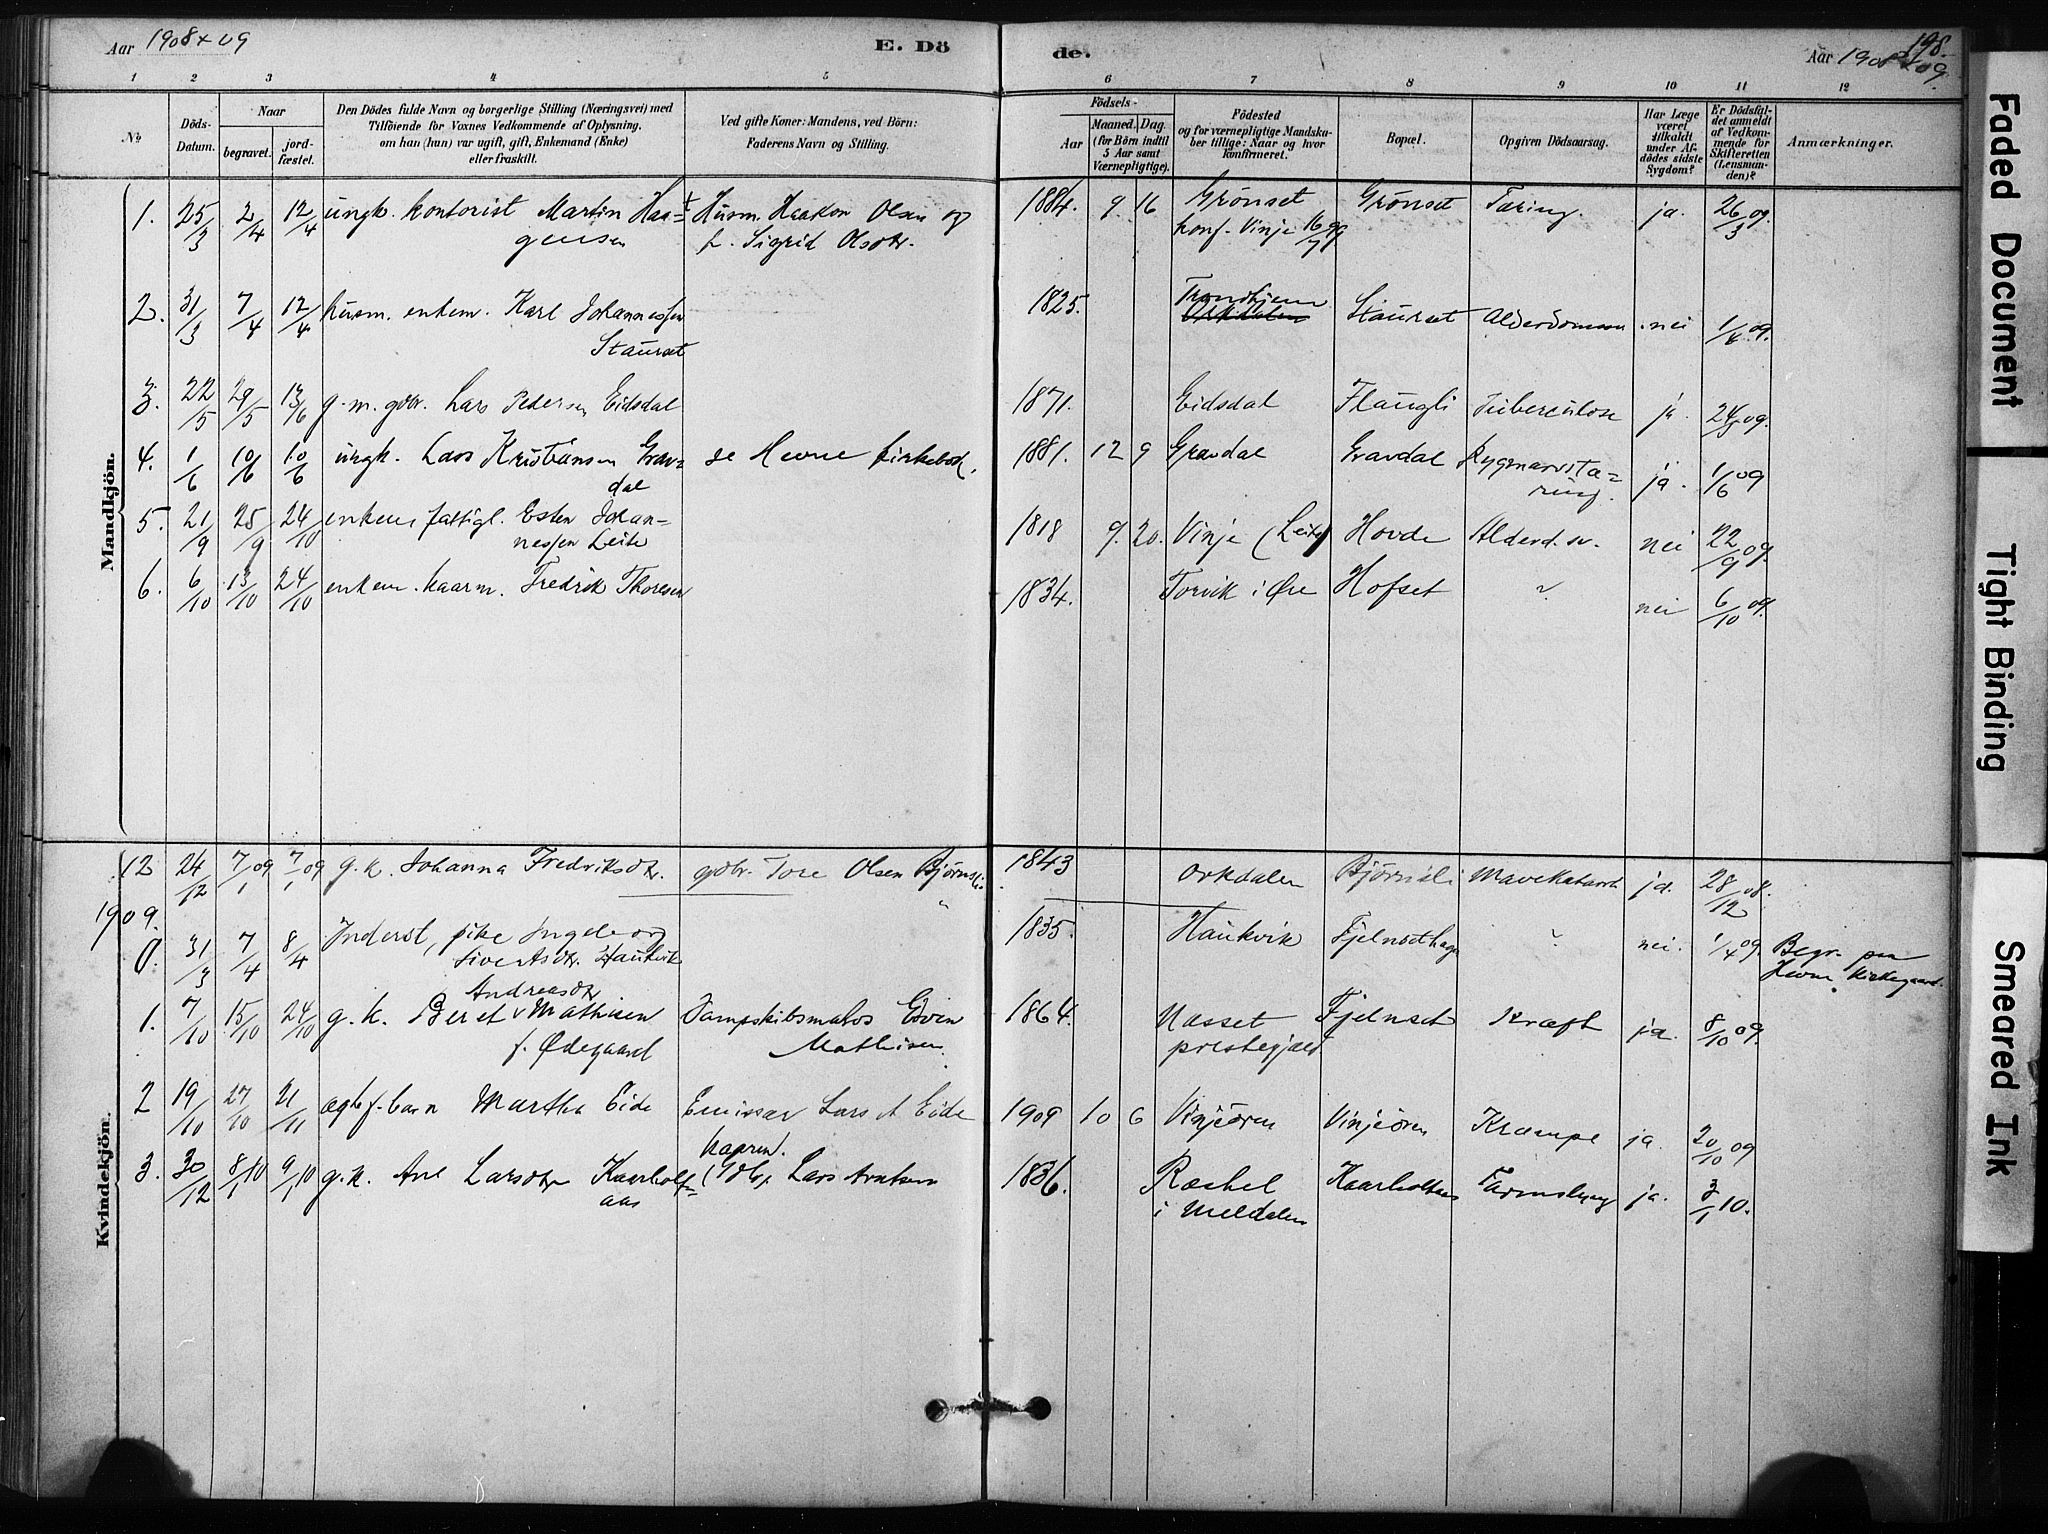 Aar 1908 + 09
E. Döde.
198.
Aar 1908 + 09.
1 2 3 4 5 6 7 8 9 10 11 12
No
Döds-
Datum.
Naar
begravet.
jord-
fæstet.
Den Dödes fulde Navn og borgerlige Stilling (Næringsvei) med
Tilföiende for Voxnes Vedkommende af Oplysning,
om han (hun) var ugift, gift, Enkemand (Enke)
eller fraskilt.
Ved gifte Koner: Mandens, ved Börn:
Faderens Navn og Stilling.
Födsels-
Aar
Maaned. Dag.
(for Börn indtil
5 Aar samt
Værnepligtige).
Födested
og for værnepligtige Mandska-
ber tillige: Naar og hvor
konfirmeret.
Bopæl.
Opgiven Dödsaarsag.
Har Læge
været
tilkaldt
under Af-
dödes sidste
Sygdom?
Er Dödsfal-
det anmeldt
af Vedkom-
mende for
Skifteretten
(Lensman-
den)?
Anmærkninger.
Mandkjön.
1. 25/3 2/4 12/4 ungk. kontorist Martin Haa-
gensen
Husm. Haakon Olsen og
h. Sigrid Olsdtr.
1884. 9. 16 Grönset
konf. Vinje 16/7 99
Grönset Tæring. ja. 26/3 09.
2. 31/3 7/4 12/4 husm. enkem. Karl Johannessen
Staurset
1825. Trondhjem
Orkdalen
Staurset Alderdommen nei 1/4 09.
3. 22/5 29/5 13/6 g. m. gdbr. Lars Pedersen Eidsdal
1871. Eidsdal Flaugli Tuberculose ja. 24/5 09.
4. 1/6 10/6 10/6 ungk. Lars Kristiansen Grav-
dal
se Hevne kirkebok.
1881. 12 9 Gravdal Gravdal Rygmarvstæ-
ring.
ja. 1/6 09
5. 21/9 25/9 24/10 enkem fattigl. Esten Johan-
nessen Leite
1818 9. 20. Vinje (Leite) Hovde Alderd. sv. nei 22/9 09.
6. 6/10 13/10 24/10 enkem. kaarm. Fredrik Thoresen
1834. Torvik i Øre Hofset " nei 6/10 09.
Kvindekjön.
12 24/12 7/1 09 7/1 09 g. k. Johanna Fredriksdtr. gdbr. Tore Olsen Björnsli
1843 Orkdalen Björnsli Mavekatarrh ja. 28/12 08.
1909.
0. 31/3 7/4 8/4 Inderst, pike Ingeborg
Sivertsdtr. Haukvik
1835. Haukvik Fjelnsethagen " nei. 1/4 09. Begr. paa
Hevne Kirkegaard.
Andreasdtr
1. 7/10 15/10 24/10 g. k. Beret Mathisen
f. Ødegaard
Dampskibsmatros Edvin
Mathisen.
1864. Næsset
prestegjæld
Fjelnset Kræft ja. 8/10 09.
2 19/10 27/10 21/11 ægtef. barn Martha Eide Emissær Lars A Eide
1909 10 6 Vinjeören Vinjeören Krampe ja. 20/10 09
3. 30/12 8/1 10 9/1 10 g. k. Ane Larsdtr Kaarholt-
aas
kaarm.
(Gdbr. Lars Arntsen
1836. Ræshel
i Meldalen
Kaarholtaas Tarmslyng ja. 3/1 10.
Faded Document
Tight Binding
Smeared Ink